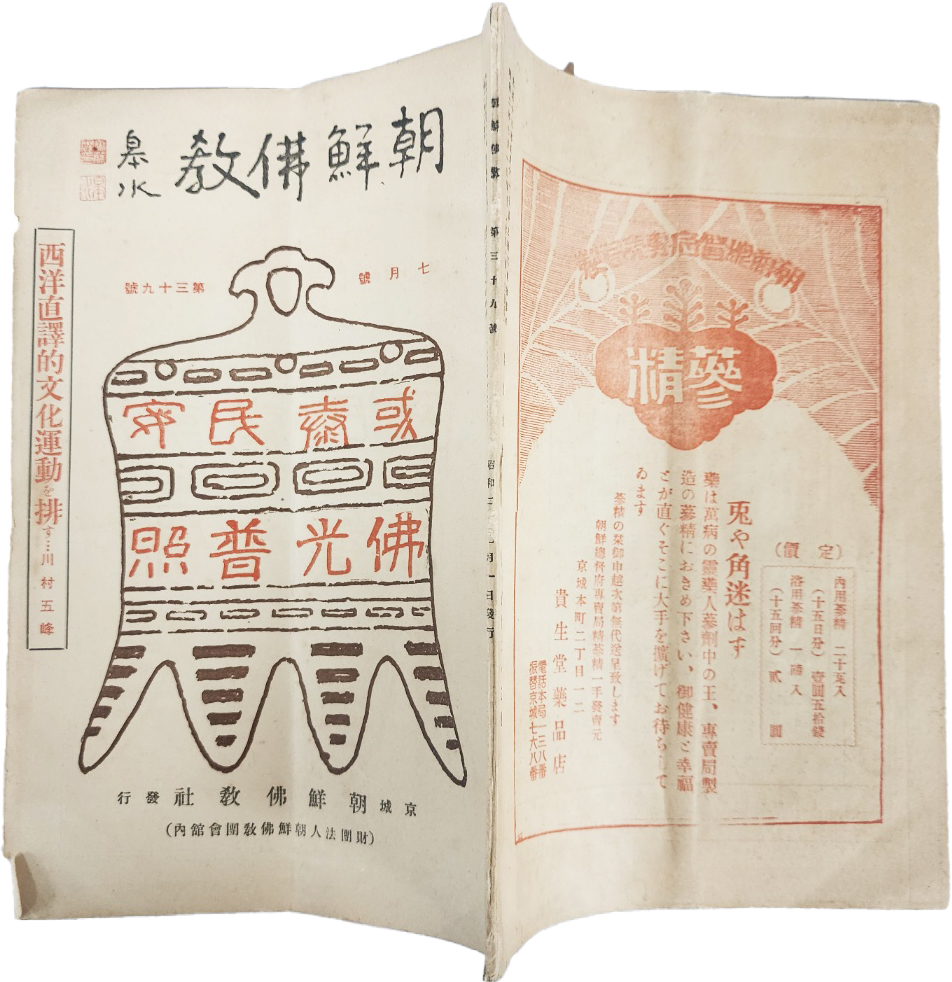 朝鮮佛教
皐水
七月號
第三十九號
或泰民安
佛光普照
西洋直譯的文化運動を排す…川村五峰
京城 朝鮮佛教社 發行
(財團法人朝鮮佛教團會館內)
朝鮮佛教 第三十九號 昭和
月一日發行
蔘精
定價
內用蔘精 二十瓦入
(十五日分) 壹圓五拾錢
浴用蔘精 一磅入
(十五回分) 貳圓
兎や角迷はず
藥は萬病の靈藥人蔘劑中の王、專賣局製
造の蔘精におきめ下さい、御健康と幸福
とが直ぐそこに大手を擴げてお待ちして
ゐます
蔘精の栞御申越次第無代進呈致します
朝鮮總督府專賣局精蔘精一手發賣元
京城本町二丁目一二
貴生堂藥品店
電話本局 七三八番
振替京城七六八番